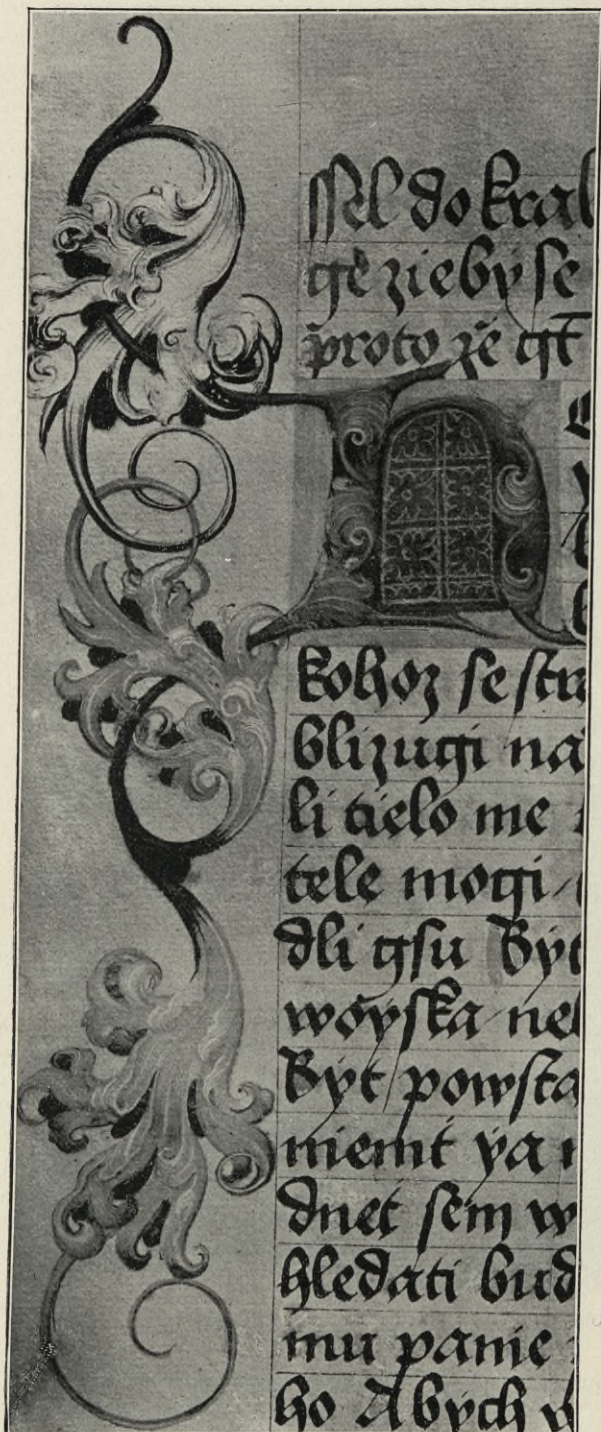 ssel do kral
gie zieby se
proto že gt
kohoz se stra
blizugi na
li tielo me
tele mogi
dli gsu Byt
woyska nel
Byt powsta
niemt ya
dnet sem w
hledati bud
mu panie
ho Abych w